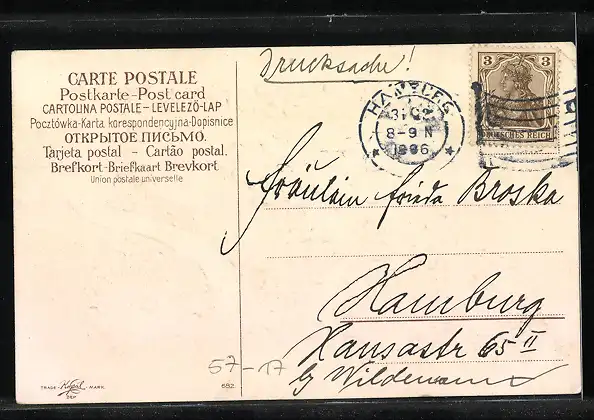 CARTE POSTALE
Postkarte-Post card
CARTOLINA POSTALE-LEVELEZŐ-LAP
Pocztówka-Karta korespondencyjna-Dopisnice
ОТКРЫТОЕ ПИСЬМО.
Tarjeta postal - Cartão postal.
Brefkort-Briefkaart Brevkort
Union postale universelle
Drucksache!
HAMBURG
8-9 N
3 3
DEUTSCHES REICH
Fräulein Frieda Broska
Hamburg
Hansastr 65 II
b/ Wildemann
57-17
TRADE MARK
682